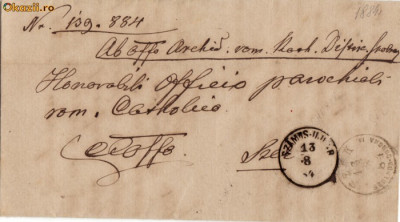 Okazii.ro
1884
Nr. 139. 884
Ab offo Archid. rom. Cath. Distric.
Honorabili Officio parochiali
rom. Catholico
Ex offo
SZAMOS-UJVÁR
13
8